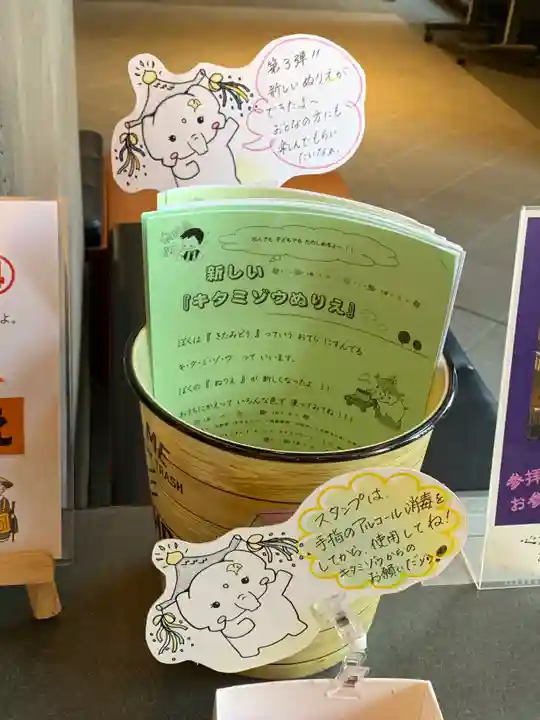 第3弾!!
新しいぬりえが
できたよ〜
おとなの方にも
楽しんでもらい
たいなぁ。
新しい
『キタミゾウぬりえ』
ぼくは『きたみどう』っていう おてら にすんでる
キ・タ・ミ・ゾ・ウ っていいます。
ぼくの『ぬりえ』が 新しくなったよ!!
おうちにかえって いろんな色で 塗っておてね!!!
スタンプは、
手指のアルコール消毒を
してから、使用してね!
キタミゾウからの
お願いだゾウ
ME
RASH
よ。
参拝
お参